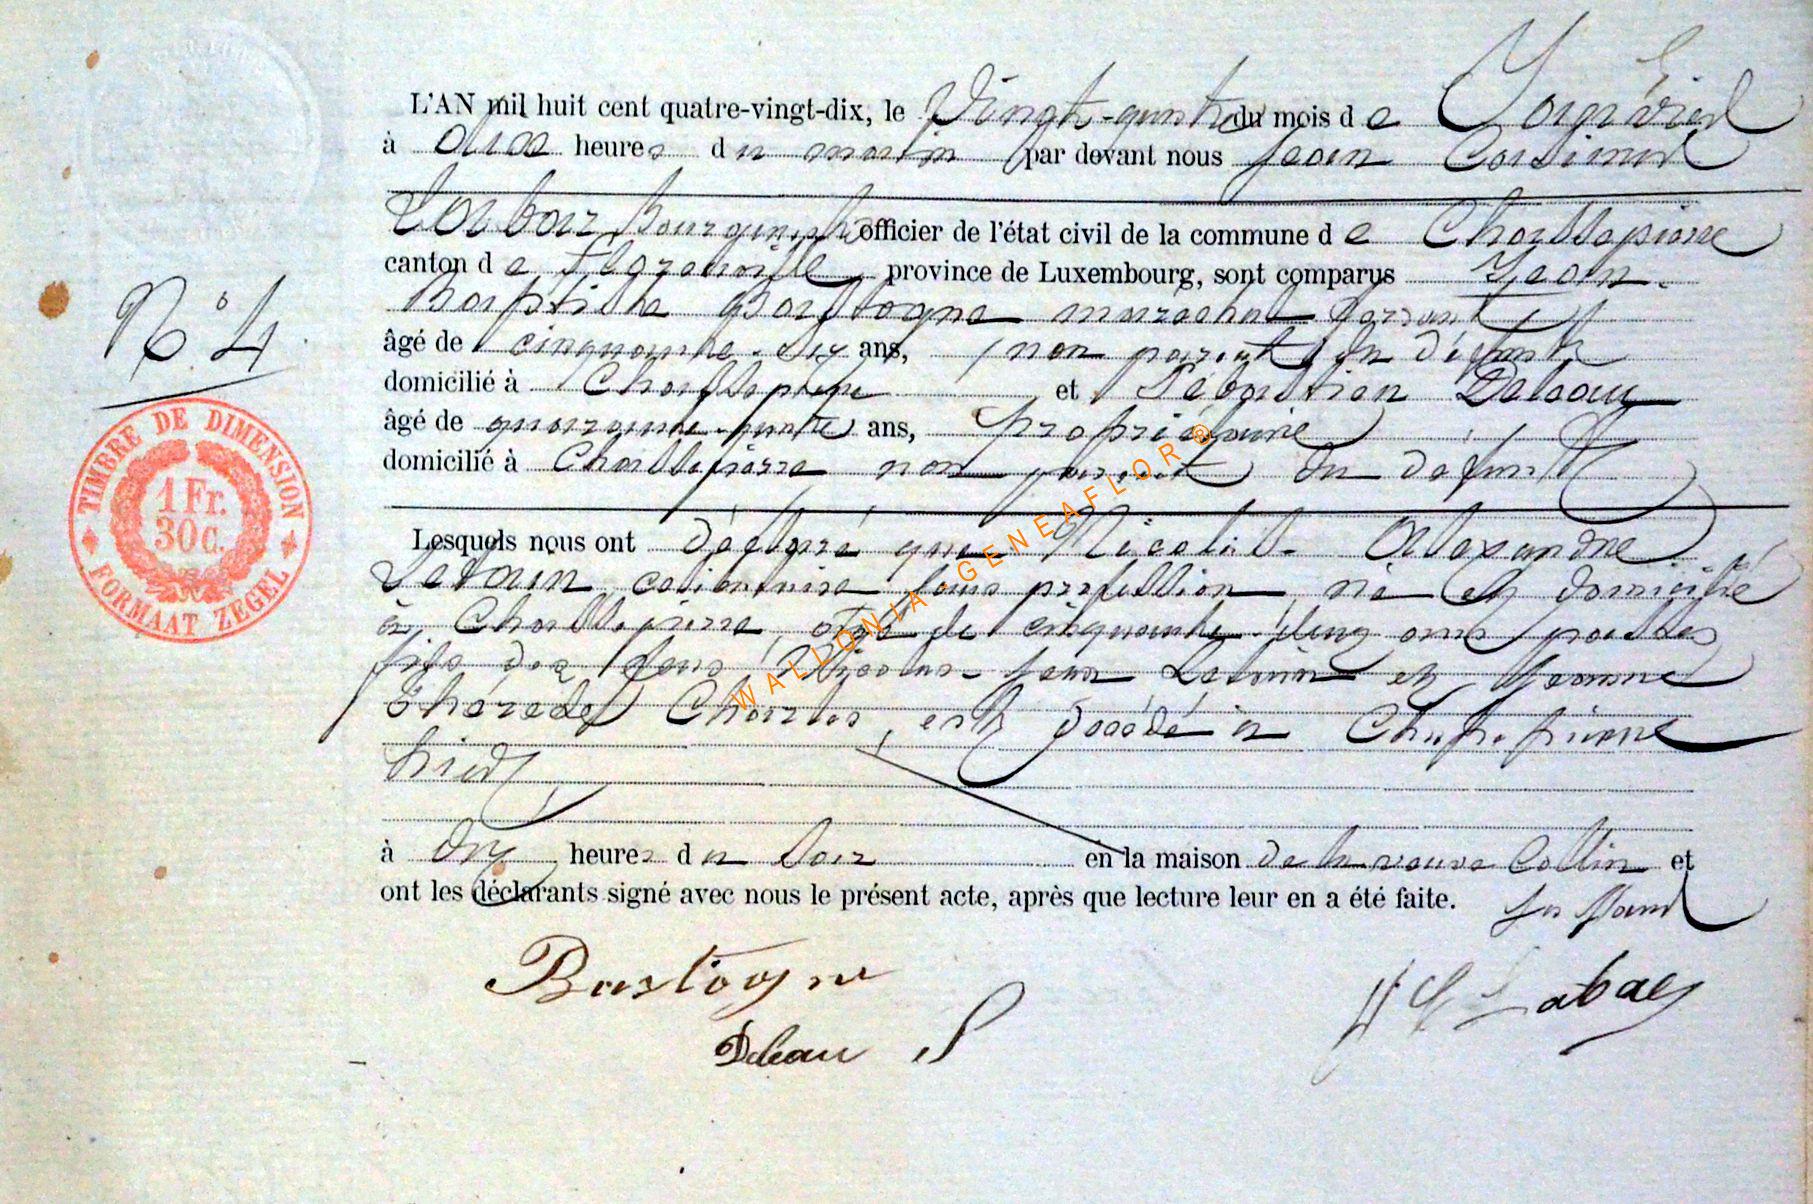 L'AN mil huit cent quatre-vingt-dix, le Vingt-quatre du mois de Janvier
à dix heures du matin par devant nous Jean Casimir
Labar Bourgmestre officier de l'état civil de la commune de Chassepierre
canton de Florenville province de Luxembourg, sont comparus Jean-
Baptiste Bastogne maréchal ferrant
âgé de cinquante-six ans, non parent du défunt
domicilié à Chassepierre et Sébastien Deleau
âgé de quarante-quatre ans, propriétaire
domicilié à Chassepierre non parent du défunt
Lesquels nous ont déclaré que Nicolas- Alexandre
célibataire sans profession, né et domicilié
à Chassepierre, âgé de cinquante-cinq ans
fils des Nicolas-Jean et Jeanne
Thérèse Charles, est décédé à Chassepierre
hier
à dix heures du soir en la maison de la veuve Collin et
ont les déclarants signé avec nous le présent acte, après que lecture leur en a été faite.
N° 4
TIMBRE DE DIMENSION
1 Fr.
30 C.
FORMAAT ZEGEL
WALLONIA-GENEAFLOR ®
Bastogne
Deleau S
J C Labar